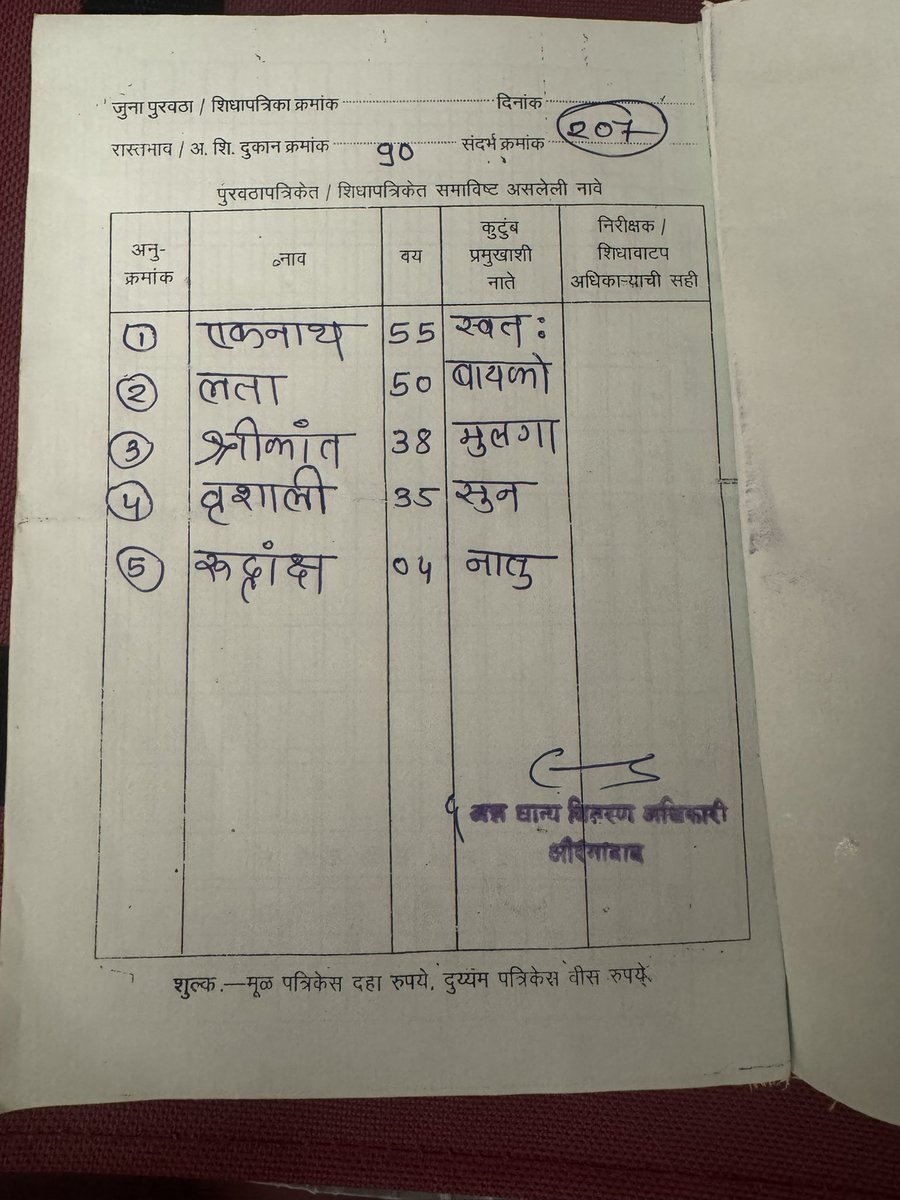 जुना पुरवठा / शिधापत्रिका क्रमांक दिनांक
रास्तभाव / अ. शि. दुकान क्रमांक 90 संदर्भ क्रमांक 207
पुरवठापत्रिकेत / शिधापत्रिकेत समाविष्ट असलेली नावे
अनु-क्रमांक नाव वय कुटुंब प्रमुखाशी नाते निरीक्षक / शिधावाटप अधिकाऱ्याची सही
1 एकनाथ 55 स्वत:
2 लता 50 बायको
3 श्रीकांत 38 मुलगा
4 वृशाली 35 सुन
5 रुद्रांक्ष 04 नातु
अन्न धान्य वितरण अधिकारी
औरंगाबाद
शुल्क.—मूळ पत्रिकेस दहा रुपये, दुय्यम पत्रिकेस वीस रुपये.